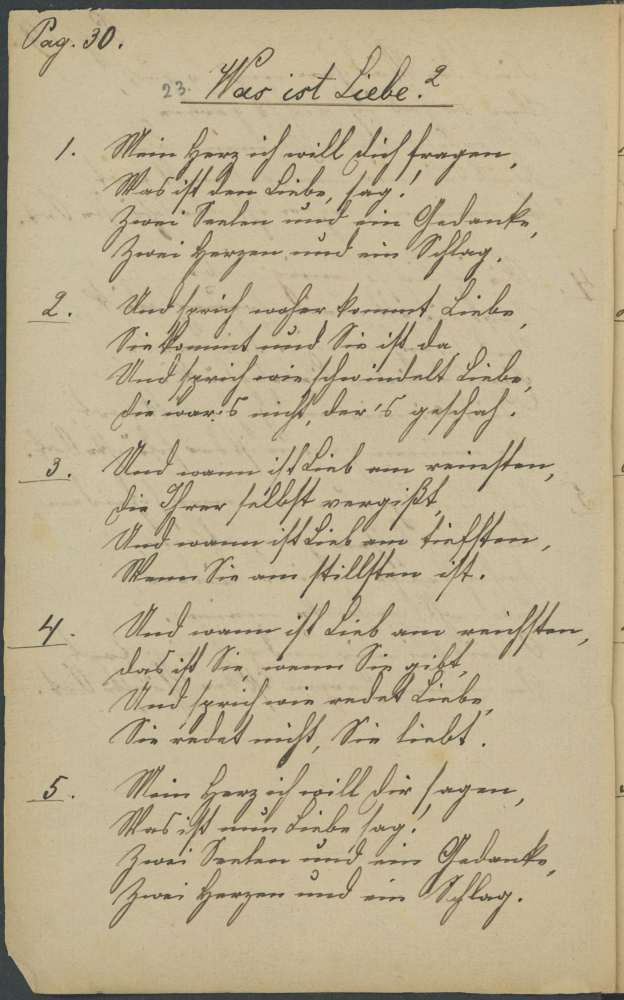 Pag. 30.
23. Was ist Liebe?
1. Mein Herz ich will dich fragen,
Was ist den Liebe, sag!
Zwei Seelen und ein Gedanke,
Zwei Herzen und ein Schlag.
2. Und sprich woher kommt Liebe,
Sie kommt und Sie ist da
Und sprich wie schwindelt Liebe,
Die war's nicht, der's geschah.
3. Und wann ist Lieb am reinsten,
Die Ihrer selbst vergißt,
Und wann ist Lieb am tiefsten,
Wenn Sie am stillsten ist.
4. Und wann ist Lieb am reichsten,
Das ist Sie, wenn Sie gibt,
Und sprich wie redet Liebe,
Sie redet nicht, Sie liebt.
5. Mein Herz ich will dir sagen,
Was ist nun Liebe sag!
Zwei Seelen und ein Gedanke,
Zwei Herzen und ein Schlag.